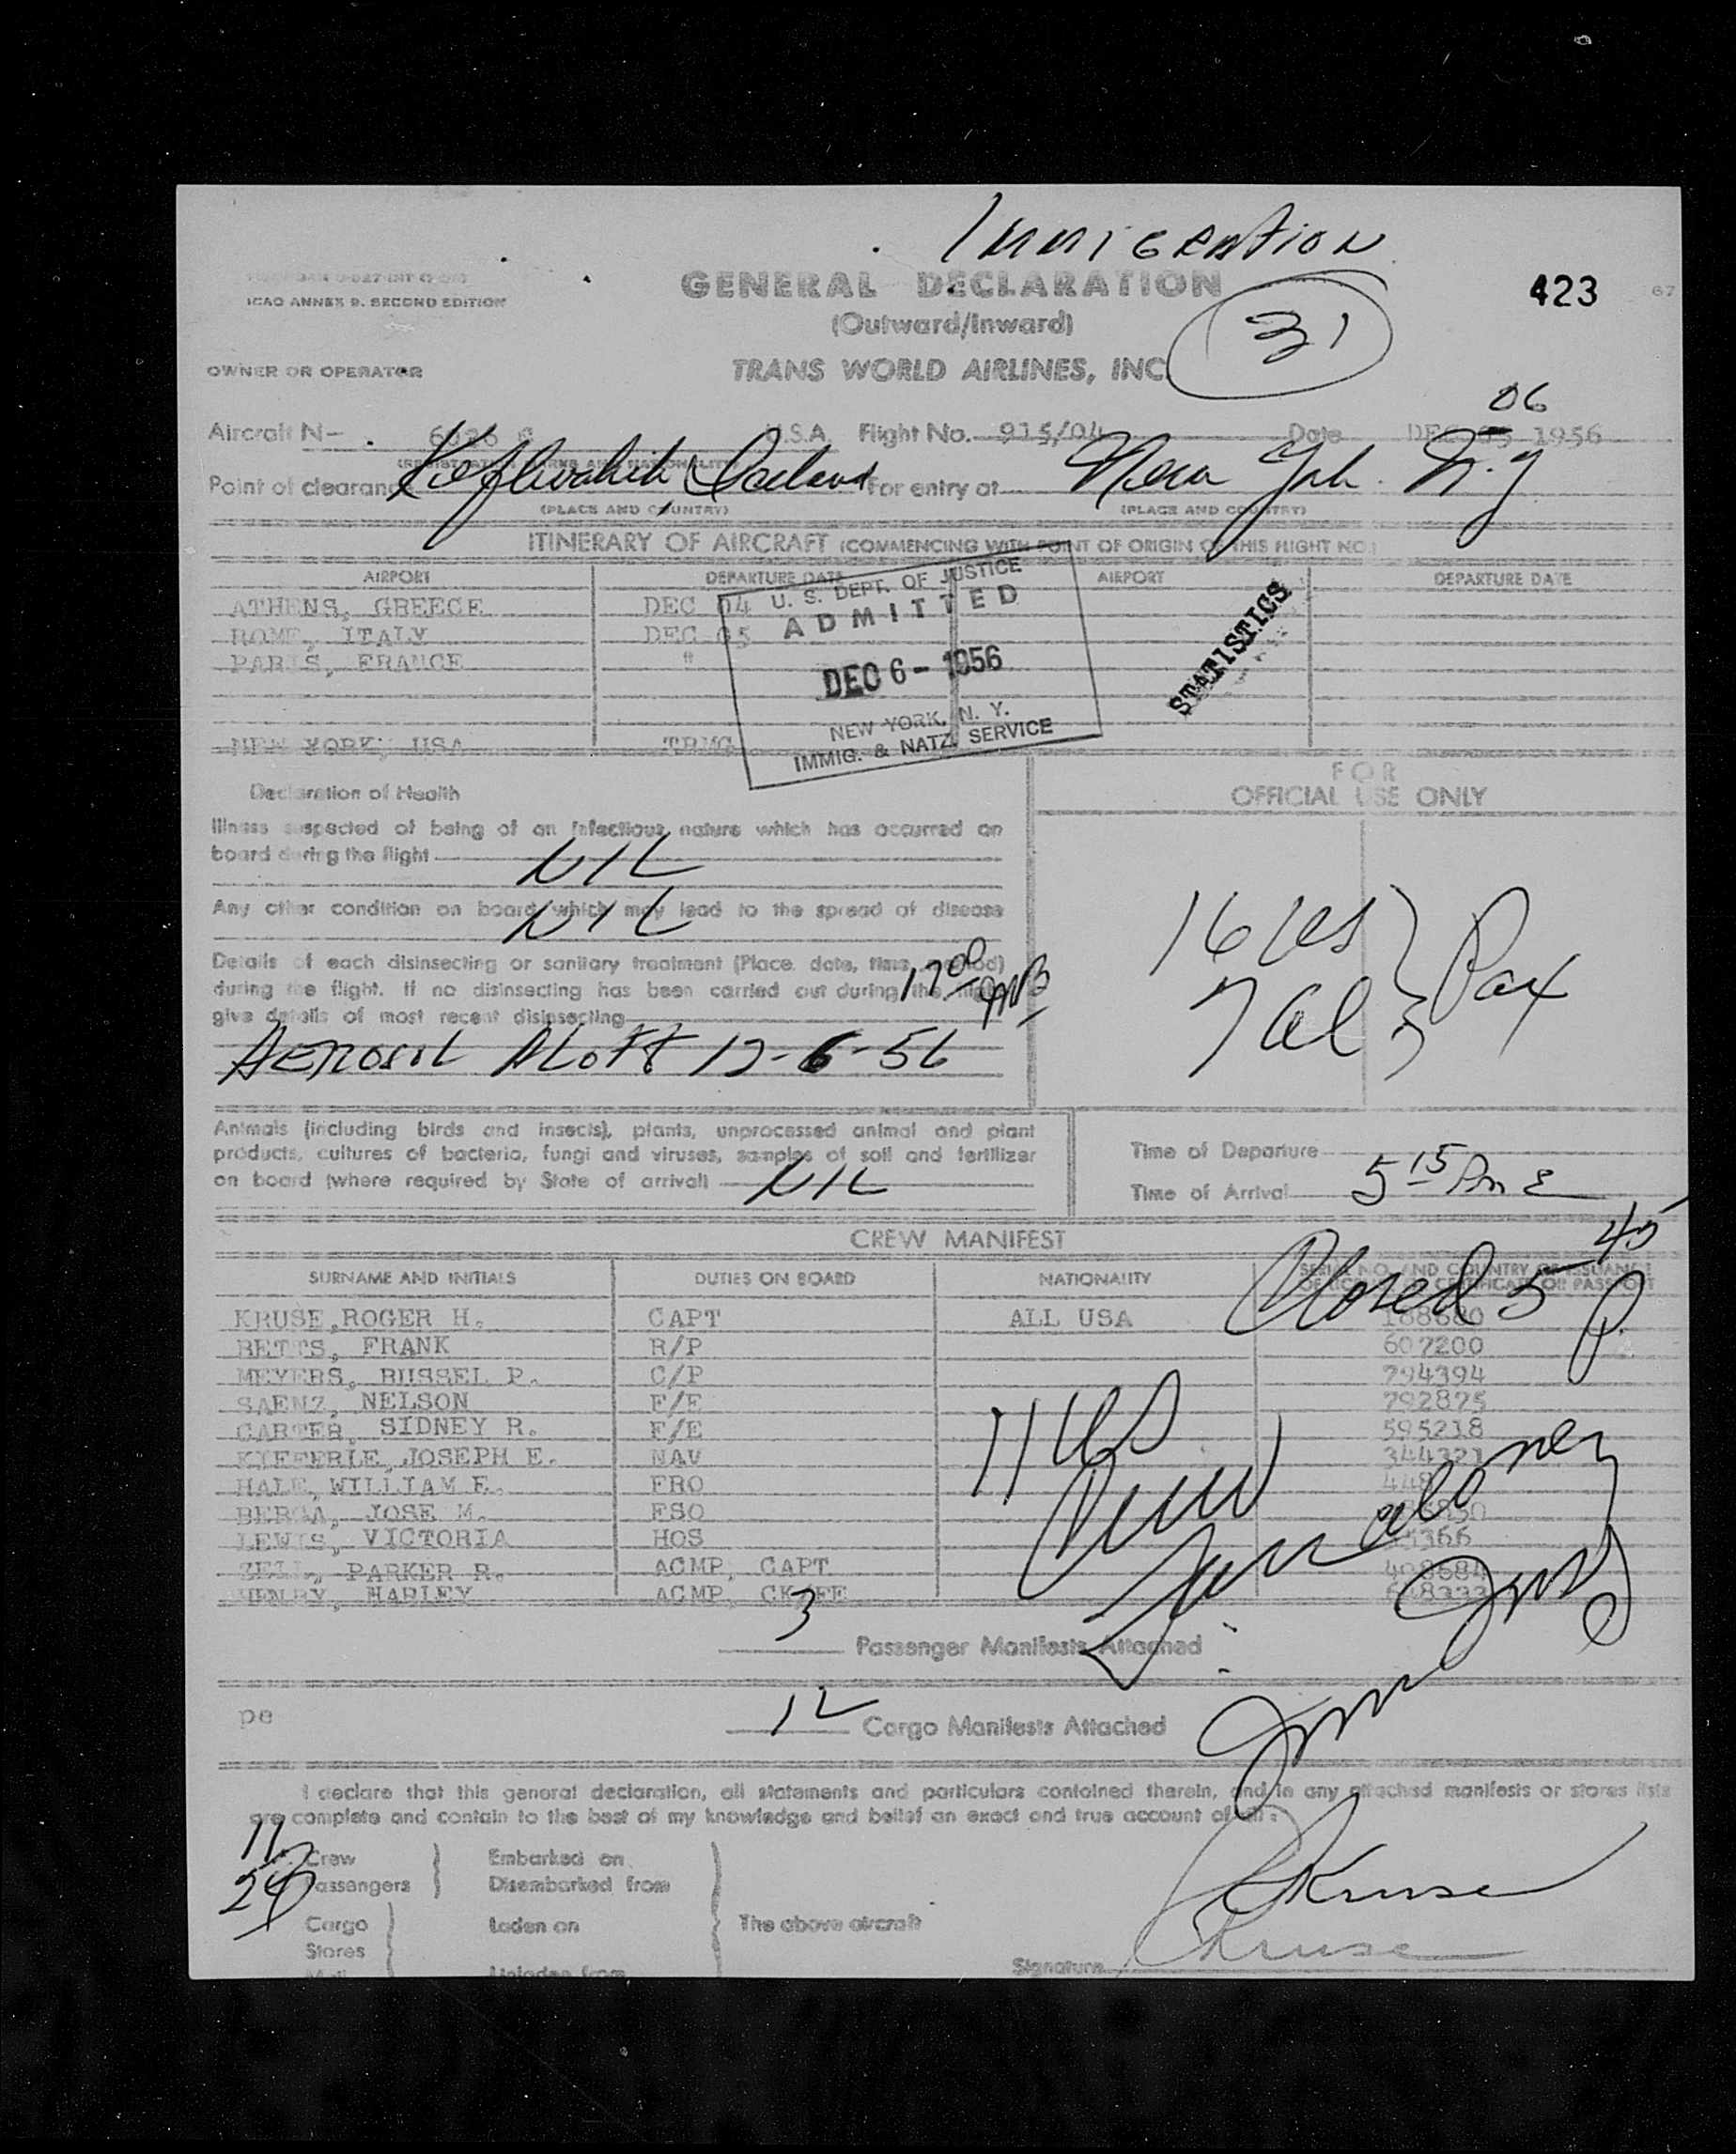 Immigration
ICAO ANNEX 9. SECOND EDITION
GENERAL DECLARATION
423
67
(Outward/Inward)
31
OWNER OR OPERATOR
TRANS WORLD AIRLINES, INC.
06
Aircraft N- U.S.A. Flight No. 915/04 Date DEC 05 1956
(REGISTRATION MARKS AND NATIONALITY)
Point of clearance Iceland For entry at New York N.Y.
(PLACE AND COUNTRY) (PLACE AND COUNTRY)
ITINERARY OF AIRCRAFT (COMMENCING WITH POINT OF ORIGIN OF THIS FLIGHT NO.)
AIRPORT DEPARTURE DATE AIRPORT DEPARTURE DATE
ATHENS, GREECE DEC 04
ROME, ITALY DEC 05
PARIS, FRANCE "
NEW YORK, USA TRMG
U. S. DEPT. OF JUSTICE
ADMITTED
DEC 6 - 1956
NEW YORK, N. Y.
IMMIG. & NATZ. SERVICE
STATISTICS
Declaration of Health
FOR
OFFICIAL USE ONLY
Illness suspected of being of an infectious nature which has occurred on
board during the flight NIL
Any other condition on board which may lead to the spread of disease
NIL
Details of each disinsecting or sanitary treatment (Place, date, time, method)
during the flight. If no disinsecting has been carried out during the flight
give details of most recent disinsecting
1700
Aerosol Aloft 12-6-56
16 US
7 Al
Pax
Animals (including birds and insects), plants, unprocessed animal and plant
products, cultures of bacteria, fungi and viruses, samples of soil and fertilizer
on board (where required by State of arrival) NIL
Time of Departure
Time of Arrival 5 15 Pm E
CREW MANIFEST
Closed 5 45 P.
SURNAME AND INITIALS DUTIES ON BOARD NATIONALITY SERIAL NO. AND COUNTRY OF ISSUANCE
OF LICENSE OR CERTIFICATE OR PASSPORT
KRUSE, ROGER H. CAPT ALL USA 168680
BETTS, FRANK R/P 607200
MEYERS, RUSSEL P. C/P 794394
SAENZ, NELSON F/E 792875
CARTER, SIDNEY R. F/E 595218
KIEFERLE, JOSEPH E. NAV 344321
HALE, WILLIAM F. FRO
BERGA, JOSE M. FSO
LEWIS, VICTORIA HOS
ZELL, PARKER R. ACMP, CAPT
HENRY, HARLEY ACMP, CK FE
11 US
3 Passenger Manifests Attached
pe
12 Cargo Manifests Attached
I declare that this general declaration, all statements and particulars contained therein, and in any attached manifests or stores lists
are complete and contain to the best of my knowledge and belief an exact and true account of all:
11 Crew Embarked on
Passengers Disembarked from
Cargo Laden on The above aircraft
Stores
Mail Unladen from
Kruse
Kruse
Signature